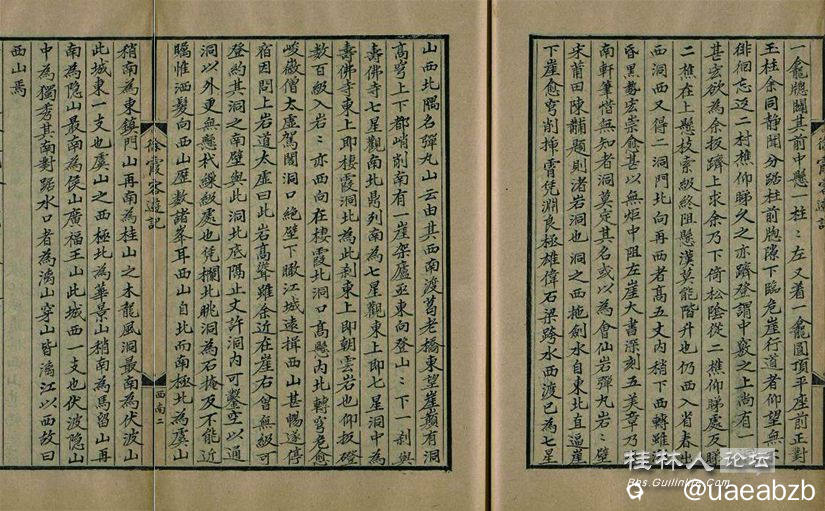 徐霞客遊記
一龕牕闢其前中懸一柱:左又着一龕圓頂平座前正對
玉柱余同靜聞分踞柱前牕隙下臨危崖行道者仰望無下
徘徊忘返二村樵仰睇久之亦躋登謂中竅之上尚有一
甚宏欲為余扳躋上求余乃下倚松陰從二樵仰睇處反睇
二樵在上懸枝索級終阻懸漢莫能階升也仍西入省春出
西洞西又得二洞門北向再西者高五丈內稍下西轉雖
昏黑勢宏崇愈甚以無炬中阻左崖大書深刻五美章乃
南軒筆惜無知者洞莫定其名或以為會仙岩彈丸岩:壁
宋莆田陳黼題則渚岩洞也洞之西拖劍水自東北直逼崖
下崖愈穹削插霄凭淵良極雄偉石梁跨水西渡已為七星
山西北隅名彈丸山云由其西南渡葛老橋東望崖巔有洞
高穹上下都峭削南有一崖架廬亟東向登山:下一刹與
壽佛寺七星觀南北鼎列南為七星觀東上即七星洞中為
壽佛寺東上即棲霞洞北為此刹東上即朝雲岩也仰扳磴
數百級入岩:亦西向在棲霞北洞口高懸內北轉穹危愈
峻徽僧太虛駕閣洞口絶壁下瞰江城遠挹西山甚暢遂停
宿因問上岩道太虛曰此岩高聳雖余近在崖右曾無級可
登約其洞之南壁與此洞北底隔止丈許洞內可鑿空以通
洞以外更無懸杙綆級處也凭欄北眺洞為石掩反不能近
矚惟洒髮向西山歷數諸峯耳西山自北而南極北為虞山
徐霞客遊記
西南二
稍南為東鎮門山再南為桂山之木龍風洞最南為伏波山
此城東一支也虞山之西極北為華景山稍南為馬留山再
南為隱山最南為侯山廣福王山此城西一支也伏波隱山
中為獨秀其南對踞水口者為漓山穿山皆漓江以西故曰
西山焉
桂林人论坛
Bbs.Guilinlife.Com
@uaeabzb